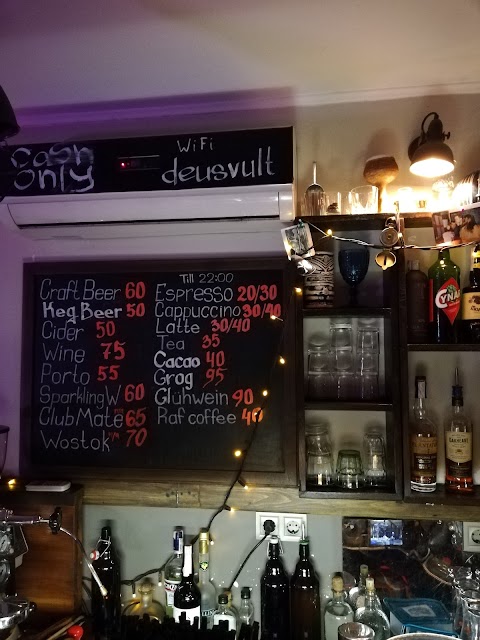 Cash
only
WiFi
deusvult
Craft Beer 60
Keg Beer 50
Cider 50
Wine 75
Porto 55
Sparkling W 60
Club Mate 65
Wostok 70
Till 22:00
Espresso 20/30
Cappuccino 30/40
Latte 30/40
Tea 35
Cacao 40
Grog 95
Glühwein 90
Raf coffee 40
CYNAR